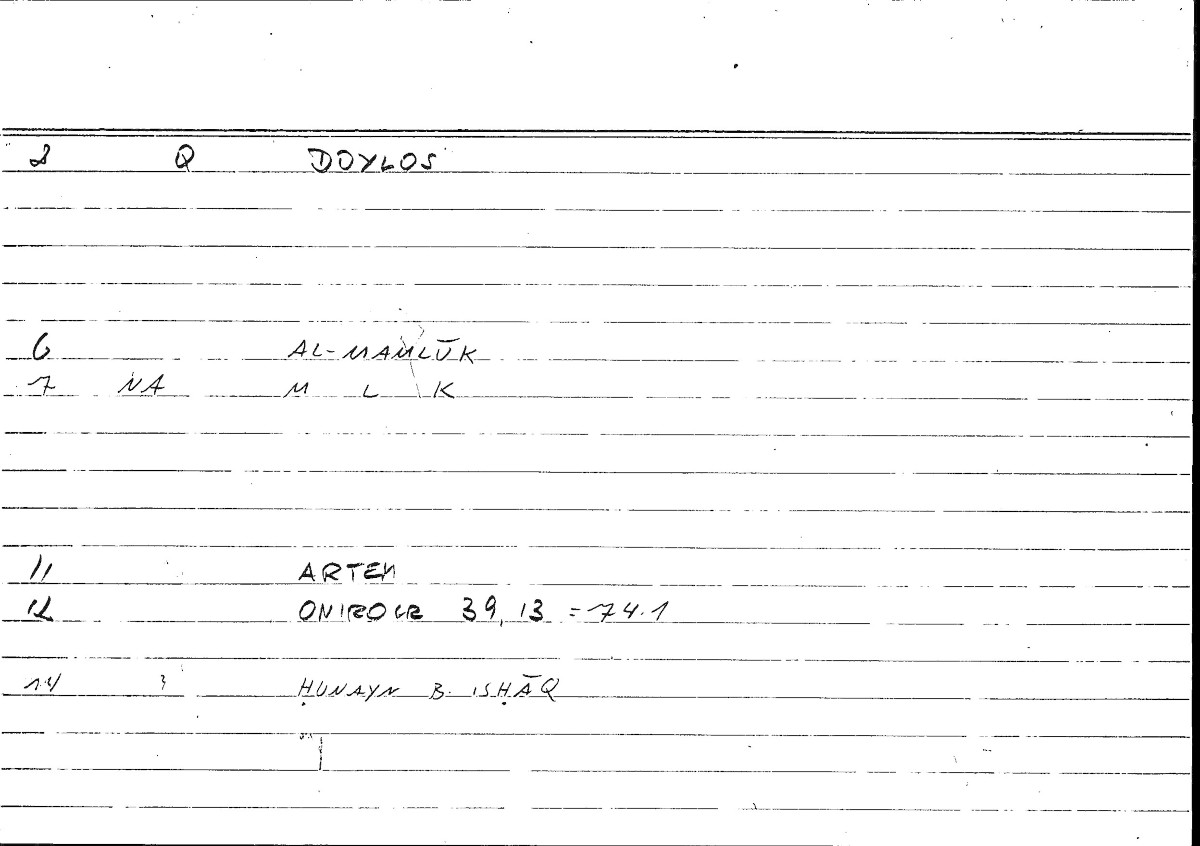 2 Q DOYLOS
6 AL-MAMLŪK
7 NA M L K
11 ARTEM
12 ONIROCR 39,13 = 74.1
14 3 ḤUNAYN B. ISḤĀQ